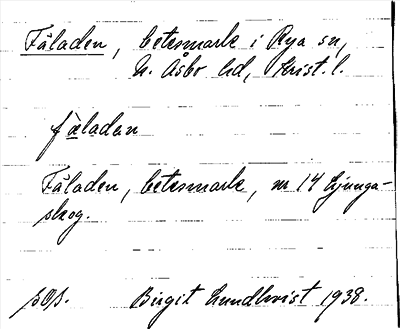 Fäladen, betesmark i Rya sn,
N. Åsbo hd, Krist. l.
fäladan
Fäladen, betesmark, nr 14 Ljunga-
skog.
sOs. Birgit Lundkvist 1938.